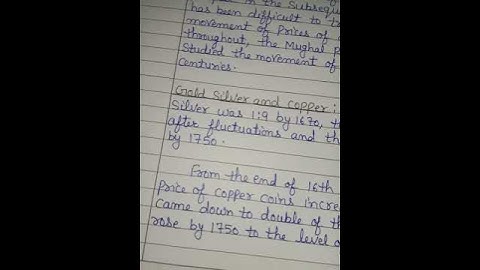 in the Subsequ
has been difficult to t
movement of prices of
throughout, the Mughal P
Studied the movement of
centuries.
Gold Silver and copper:
Silver was 1:9 by 1670, t
after fluctuations and th
by 1750.
From the end of 16th
price of copper coins incre
came down to double of th
rose by 1750 to the level o